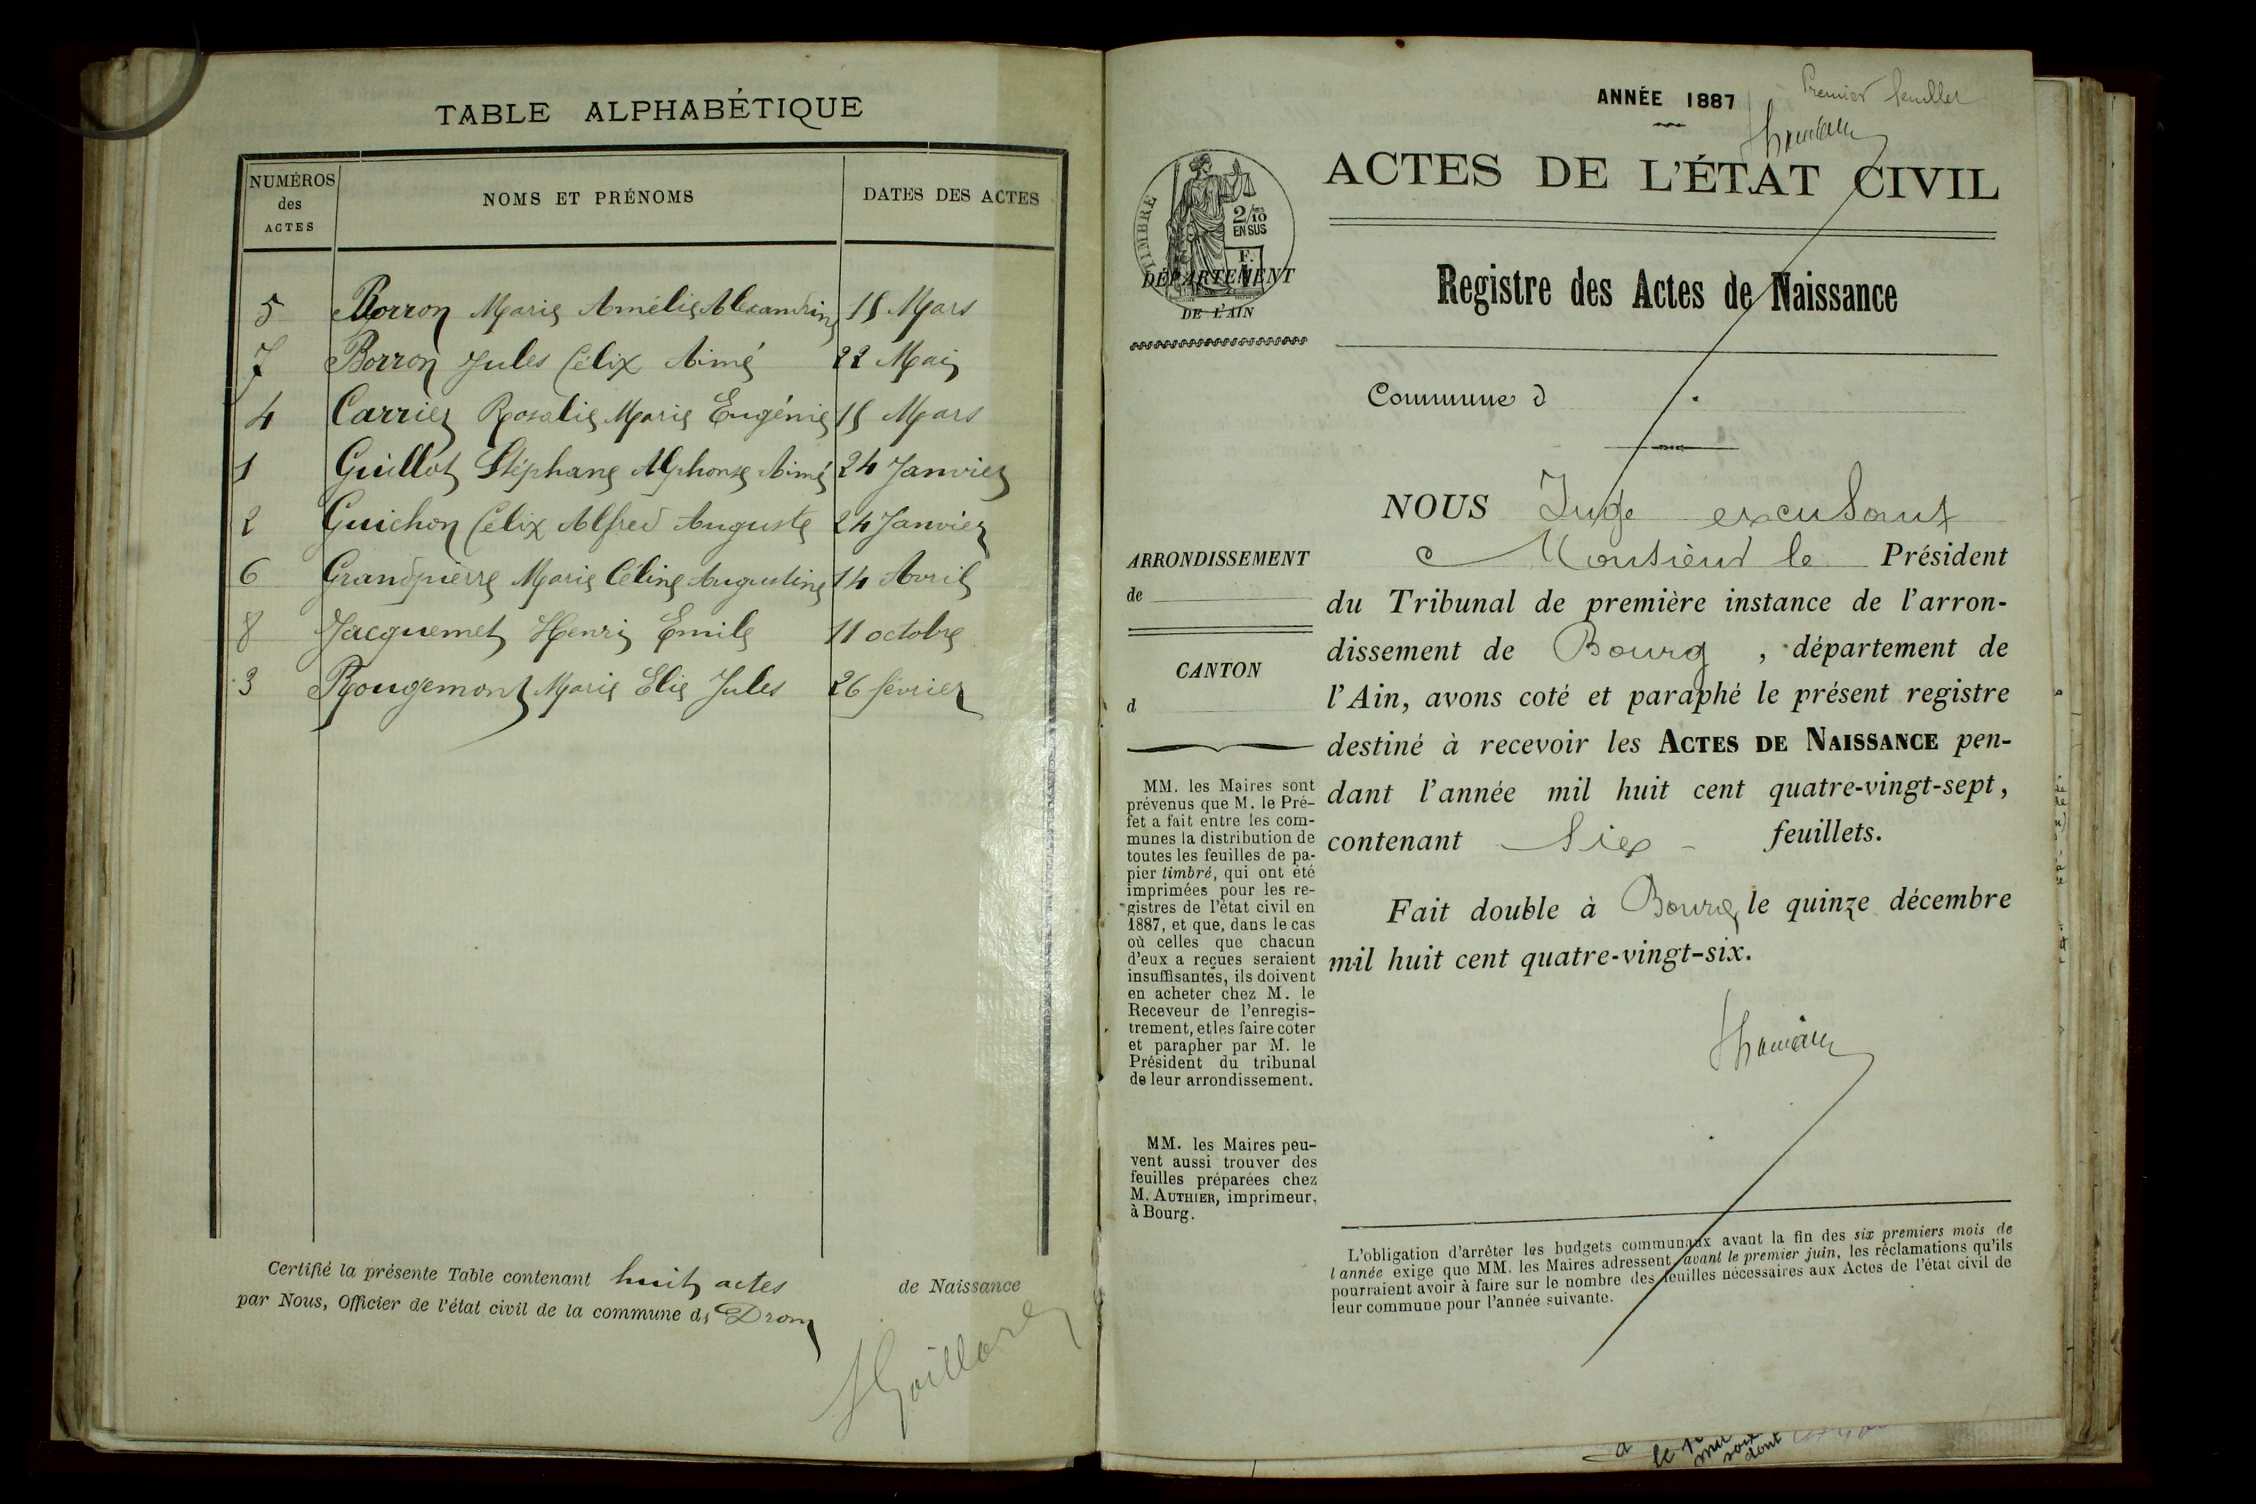 TABLE ALPHABÉTIQUE
NUMÉROS des ACTES
NOMS ET PRÉNOMS
DATES DES ACTES
5 Borron Marie Amélie Alexandrine 15 Mars
7 Borron Jules Célix Aimé 22 Mai
4 Carrier Rosalie Marie Eugénie 15 Mars
1 Guillot Stéphane Alphonse Aimé 24 Janvier
2 Guichon Célix Alfred Auguste 24 Janvier
6 Grandpierre Marie Céline Augustine 14 Avril
8 Jacquemet Henri Emile 11 octobre
3 Rougemont Marie Elie Jules 26 février
Certifié la présente Table contenant huit actes de Naissance
par Nous, Officier de l'état civil de la commune de Drom
ANNÉE 1887
Premier feuillet
ACTES DE L'ÉTAT CIVIL
TIMBRE
2/10
EN SUS
F.
DÉPARTEMENT
DE L'AIN
Registre des Actes de Naissance
Commune d
ARRONDISSEMENT
de
CANTON
d
MM. les Maires sont
prévenus que M. le Pré-
fet a fait entre les com-
munes la distribution de
toutes les feuilles de pa-
pier timbré, qui ont été
imprimées pour les re-
gistres de l'état civil en
1887, et que, dans le cas
où celles que chacun
d'eux a reçues seraient
insuffisantes, ils doivent
en acheter chez M. le
Receveur de l'enregis-
trement, et les faire coter
et parapher par M. le
Président du tribunal
de leur arrondissement.
MM. les Maires peu-
vent aussi trouver des
feuilles préparées chez
M. AUTHIER, imprimeur,
à Bourg.
NOUS Juge excusant
Monsieur le Président
du Tribunal de première instance de l'arron-
dissement de Bourg, département de
l'Ain, avons coté et paraphé le présent registre
destiné à recevoir les ACTES DE NAISSANCE pen-
dant l'année mil huit cent quatre-vingt-sept,
contenant Six feuillets.
Fait double à Bourg, le quinze décembre
mil huit cent quatre-vingt-six.
L'obligation d'arrêter les budgets communaux avant la fin des six premiers mois de
l'année exige que MM. les Maires adressent, avant le premier juin, les réclamations qu'ils
pourraient avoir à faire sur le nombre des feuilles nécessaires aux Actes de l'état civil de
leur commune pour l'année suivante.